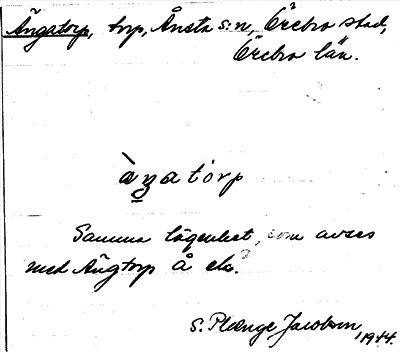 Ängatorp, trp, Ånsta s:n, Örebro stad,
Örebro län.
àŋatórp
Samma lägenhet, som avses
med Ängtorp Å ek.?
S. Plænge Jacobson, 1944.